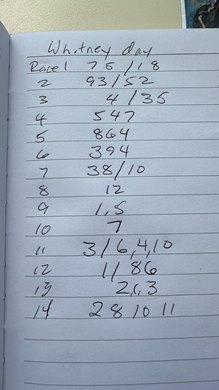 Whitney day
Race 1 75/18
2 93/52
3 4/35
4 547
5 864
6 394
7 38/10
8 12
9 1,5
10 7
11 3/6,4,10
12 1/86
13 2,1,3
14 2 8 10 11